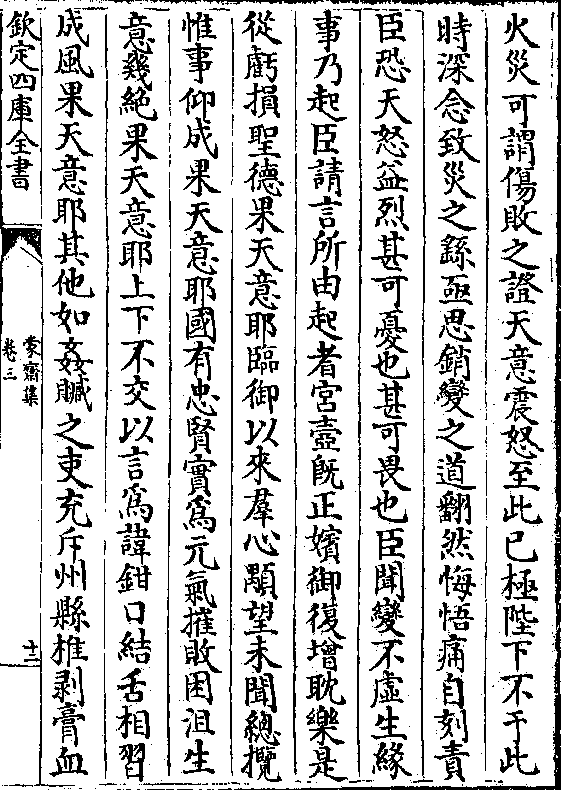 火災可謂傷敗之證天意震怒至此已極陛下不干此
時深念致災之繇亟思銷變之道翻然悔悟痛自刻責
臣恐天怒益烈甚可憂也甚可畏也臣聞變不虛生緣
事乃起臣請言所由起者宮壼既正嬪御復增耽樂是
從虧損聖德果天意耶臨御以來羣心顒望未聞總攬
惟事仰成果天意耶國有忠賢實爲元氣摧敗困沮生
意幾絶果天意耶上下不交以言爲諱鉗口結舌相習
成風果天意耶其他如姦贓之吏充斥州縣椎剥膏血
欽定四庫全書
蒙齋集
卷三
十二